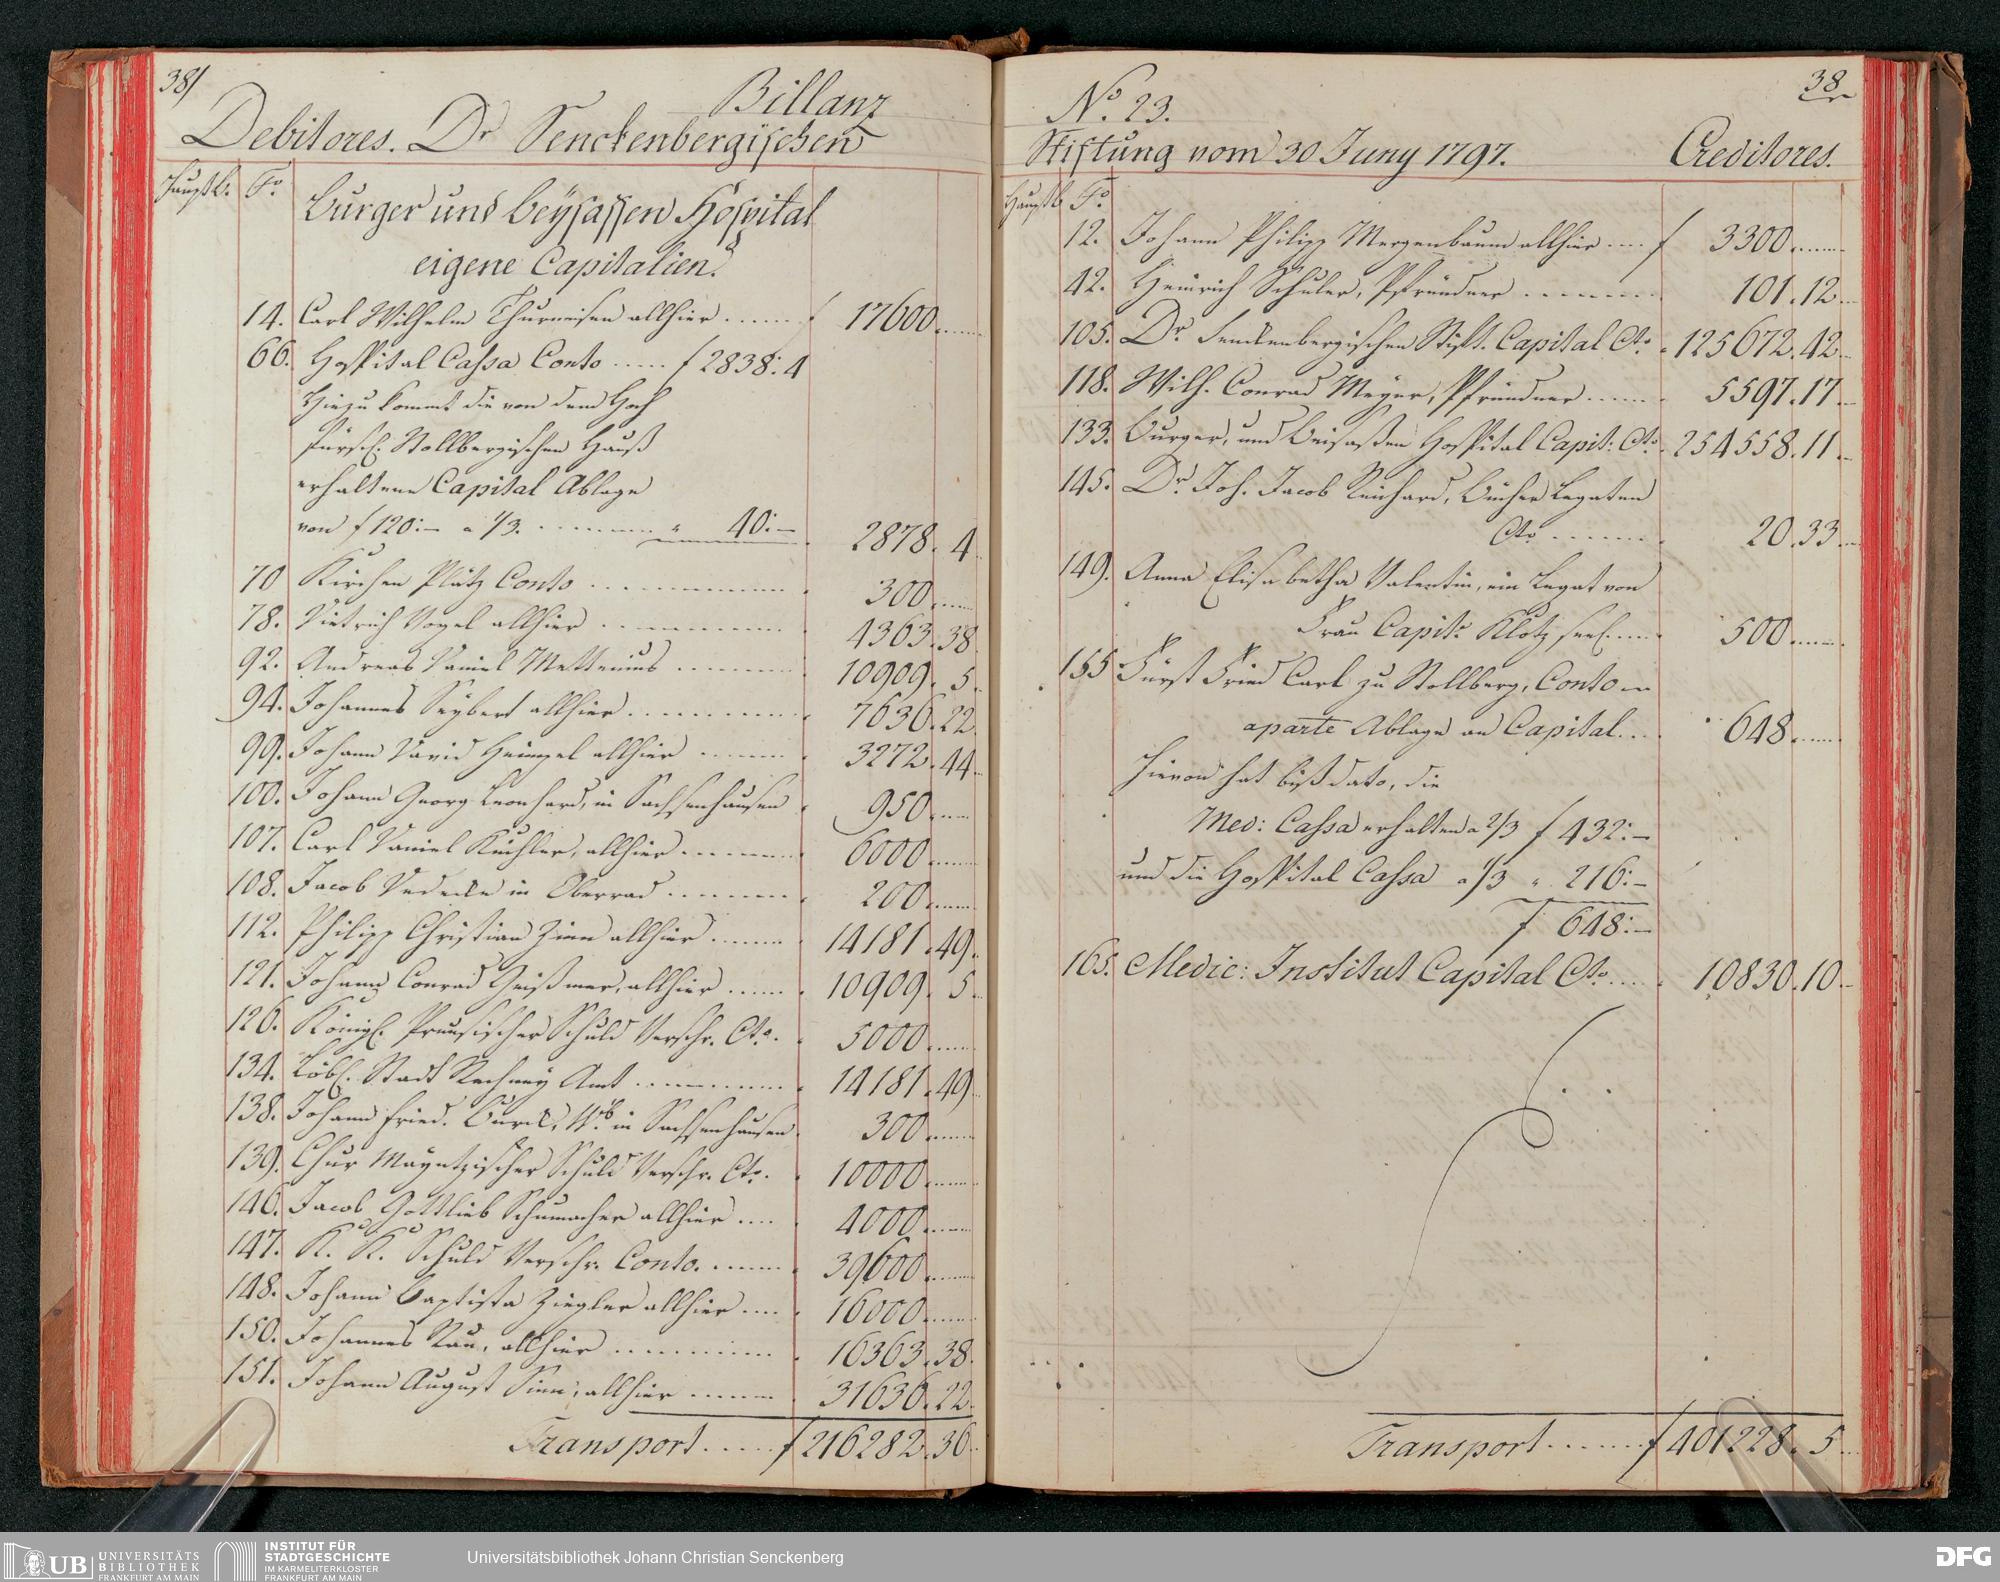 38/
Billanz
Debitores. Dr Senckenbergischen
Hauptb. Fo.
Burger und Beysassen Hospital
eigene Capitalien.
14. Carl Wilhelm Thurneisen allhier ...... f 17600......
66. Hospital Cassa Conto ..... f 2838: 4
Hiezu kommt die von dem Hoch
fürstl. Stollbergischen Hauß
erhaltene Capital Ablage
von f 120:— a 1/3. ........... " 40:— 2878. 4
70 Kirchen Plätz Conto ............ 300......
78. Dietrich Vogel allhier ............ 4363.38
92. Andreas Daniel Mettenius ......... 10909. 5.
94. Johannes Seybert allhier ............ 7636.22
99. Johann David Heimpel allhier ......... 3272.44
100. Johann Georg Leonhard, in Sachsenhausen 950.....
107. Carl Daniel Küchler, allhier ......... 6000......
108. Jacob in Oberrad ......... 200......
112. Philipp Christian Zinn allhier ....... 14181.49.
121. Johann Conrad Geißmer, allhier ...... 10909. 5.
126. Königl. Preusischer Schuld Verschr. Cto. 5000......
134. Löbl. Stadt Rechney Amt ............ 14181.49
138. Johann Fried. Burck, Wb. in Sachsenhausen 300......
139. Chur Mayntzischer Schuld Verschr. Cto. 10000......
146. Jacob Gottlieb Schumacher allhier .... 4000......
147. K. K. Schuld Verschr. Conto. ...... 39600......
148. Johann Baptista Ziegler allhier .... 16000......
150. Johannes Rau, allhier ............ 16363.38.
151. Johann August Sinn, allhier ....... 31636.22.
Transport ..... f 216282.36.
38
No. 23.
Stiftung vom 30 Juny 1797. Creditores.
Hauptb Fo
12. Johann Philipp Mergenbaum allhier .... f 3300.......
42. Heinrich Schuler, Pfründner ........ 101.12..
105. Dr. Senckenbergischen Stift. Capital Cto. 125672.42..
118. Wilh. Conrad Meyer, Pfründner ...... 5597.17..
133. Burger, und Beisaßen Hospital Capit: Cto. 254558.11..
145. Dr. Joh. Jacob Reichard, Bücher Legaten
Cto ........ 20.33...
149. Anna Elisabetha Valentin, ein Legat von
Frau Capit: Klotz seel. .... 500.......
155 Fürst Fried Carl zu Stollberg, Conto
aparte Ablage an Capital... 648.......
Hievon hat biß dato, die
Med: Cassa erhalten a 2/3 f 432:—
und die Hospital Cassa a 1/3 " 216:—
f 648:—
165. Medic: Institut Capital Cto. .... 10830.10..
Transport ....... f 401228. 5...
UB UNIVERSITÄTS
BIBLIOTHEK
FRANKFURT AM MAIN
INSTITUT FÜR
STADTGESCHICHTE
IM KARMELITERKLOSTER
FRANKFURT AM MAIN
Universitätsbibliothek Johann Christian Senckenberg
DFG